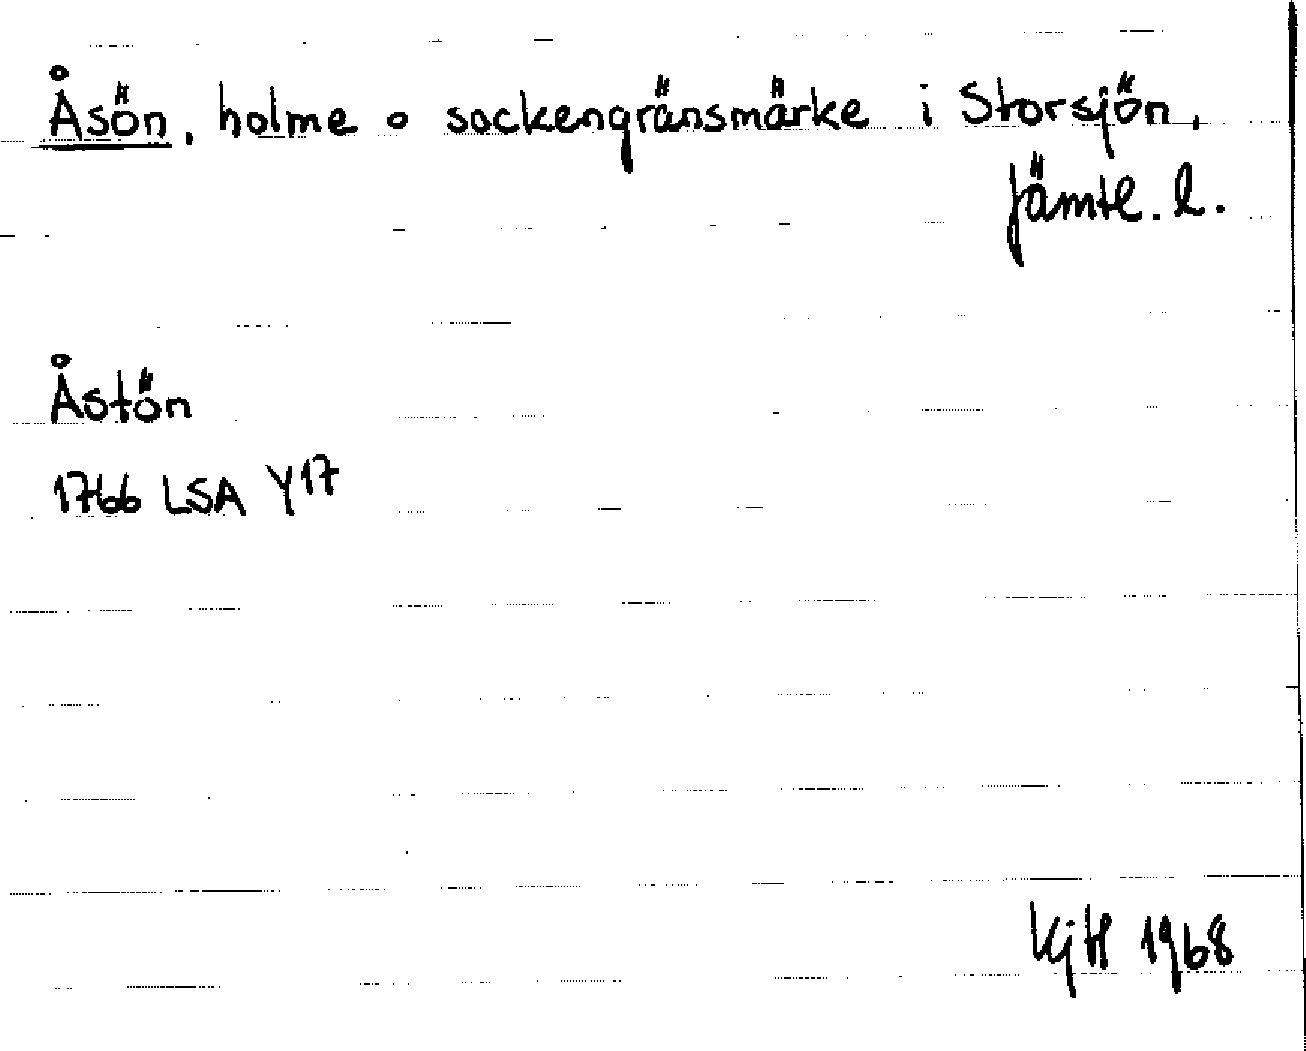 Åsön, holme o sockengränsmärke i Storsjön,
Jämtl. l.
Åstön
1766 LSA Y17
KjH 1968